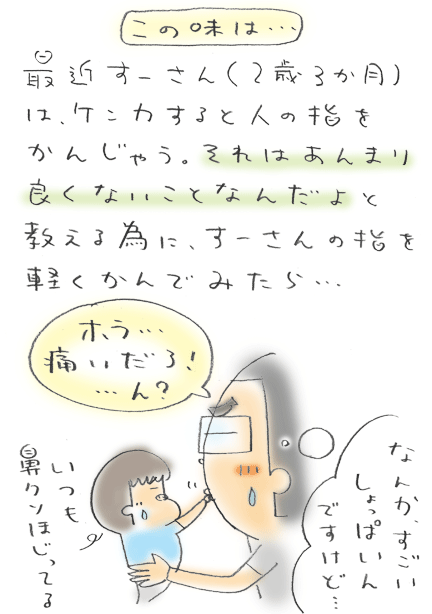 この味は…
最近すーさん(2歳3か月)
は、ケンカすると人の指を
かんじゃう。それはあんまり
良くないことなんだよと
教える為に、すーさんの指を
軽くかんでみたら…
ホラ…
痛いだろ!
…ん?
なんか、すごい
しょっぱいん
ですけど…
いつも
鼻クソほじってる